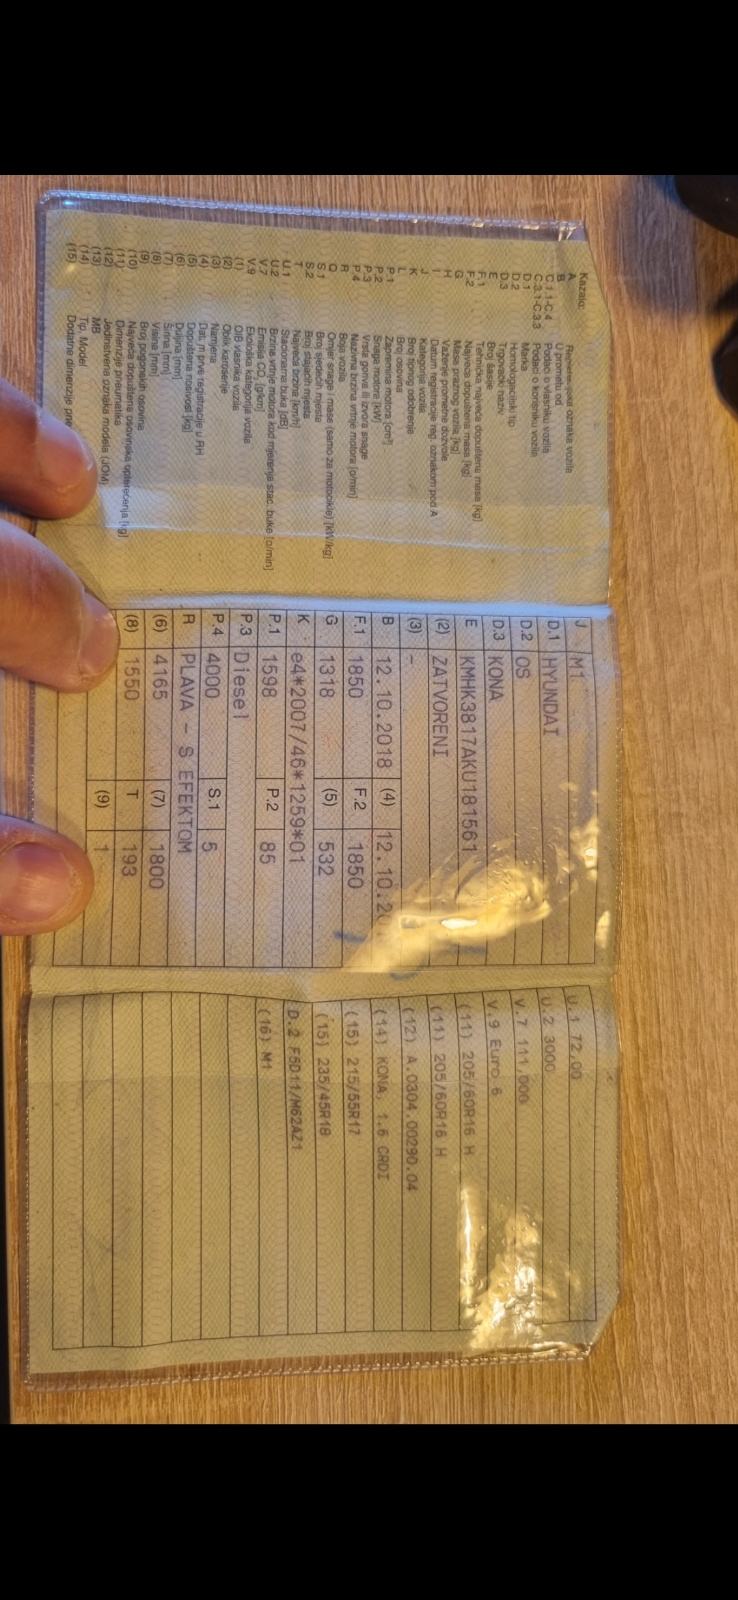 Kazalo:
A oznaka vozila
B U prometu od
C.1.1-C.4 Podaci o vlasniku vozila
C.3.1-C.3.3 Podaci o korisniku vozila
D.1 Marka
D.2 Homologacijski tip
D.3 Trgovački naziv
E Broj šasije
F.1 Tehnička najveća dopuštena masa [kg]
F.2 Najveća dopuštena masa [kg]
G Masa praznog vozila [kg]
H Važenje prometne dozvole
I Datum registracije reg. oznakom pod A
J Kategorija vozila
K Broj tipnog odobrenja
L Broj osovina
P.1 Zapremina motora [cm³]
P.2 Snaga motora [kW]
P.3 Vrsta goriva ili izvora snage
P.4 Nazivna brzina vrtnje motora [o/min]
R Boja vozila
Q Omjer snage i mase (samo za motocikle) [kW/kg]
S.1 Broj sjedećih mjesta
S.2 Broj stajaćih mjesta
T Najveća brzina [km/h]
U.1 Stacionarna buka [dB]
U.2 Brzina vrtnje motora kod mjerenja stac. buke [o/min]
V.7 Emisija CO₂ [g/km]
V.9 Ekološka kategorija vozila
(1) OIB vlasnika vozila
(2) Oblik karoserije
(3) Namjena
(4) Dat. prve registracije u RH
(5) Dopuštena nosivost [kg]
(6) Duljina [mm]
(7) Širina [mm]
(8) Visina [mm]
(9) Broj pogonskih osovina
(10) Najveća dopuštena osovinska opterećenja [kg]
(11) Dimenzije pneumatika
(12) Jedinstvena oznaka modela (JOM)
(13) MB
(14) Tip, Model
(15) Dodatne dimenzije
J M1
D.1 HYUNDAI
D.2 OS
D.3 KONA
E KMHK3817AKU181561
(2) ZATVORENI
(3) -
B 12.10.2018 (4) 12.10.20
F.1 1850 F.2 1850
G 1318 (5) 532
K e4*2007/46*1259*01
P.1 1598 P.2 85
P.3 Diesel
P.4 4000 S.1 5
R PLAVA - S EFEKTOM
(6) 4165 (7) 1800
(8) 1550 T 193
(9) 1
U.1 72,00
U.2 3000
V.7 111,000
V.9 Euro 6
(11) 205/60R16 H
(11) 205/60R16 H
(12) A.0304.00290.04
(14) KONA, 1.6 CRDI
(15) 215/55R17
(15) 235/45R18
D.2 F5D11/M62AZ1
(16) M1